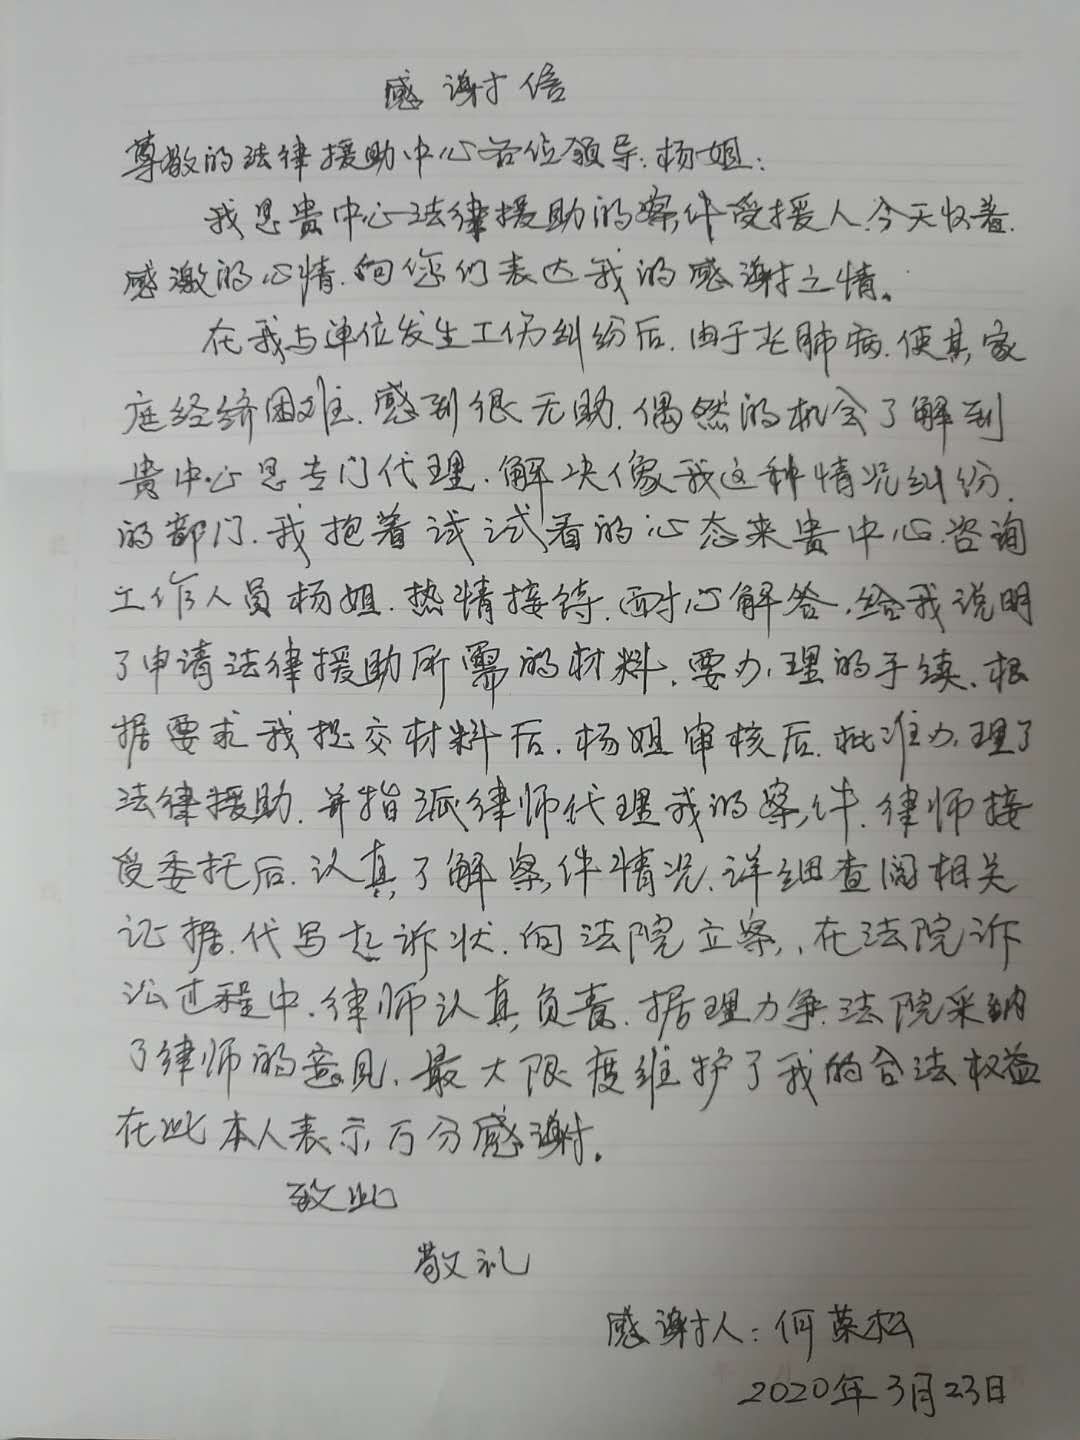 感谢信
尊敬的法律援助中心各位领导.杨姐:
我是贵中心法律援助的案件受援人.今天怀着.
感激的心情.向您们表达我的感谢之情。
在我与单位发生工伤纠纷后.由于尘肺病.使其家
庭经济困难.感到很无助.偶然的机会了解到
贵中心是专门代理.解决像我这种情况纠纷.
的部门.我抱着试试看的心态来贵中心.咨询
工作人员杨姐.热情接待.耐心解答.给我说明
了申请法律援助所需的材料.要办理的手续.根
据要求我提交材料后.杨姐审核后.批准办理了
法律援助.并指派律师代理我的案件.律师接
受委托后.认真了解案件情况.详细查阅相关
证据.代写起诉状.向法院立案,.在法院诉
讼过程中.律师认真负责.据理力争.法院采纳
了律师的意见.最大限度维护了我的合法权益
在此本人表示万分感谢。
致此
敬礼
感谢人:何 松
2020年3月23日